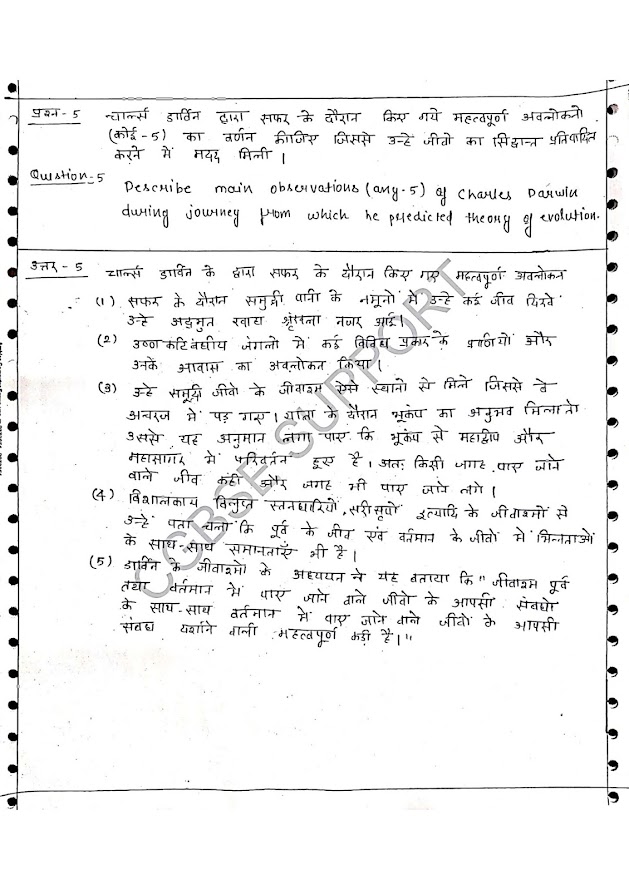 प्रश्न-5 चार्ल्स डार्विन द्वारा सफर के दौरान किए गये महत्वपूर्ण अवलोकनो
(कोई-5) का वर्णन कीजिए जिससे उन्हे जीवो का सिद्धान्त प्रतिपादित
करने में मदद मिली।
Question-5 Describe main observations (any-5) of Charles Darwin
during journey from which he predicted theory of evolution.
उत्तर-5 चार्ल्स डार्विन के द्वारा सफर के दौरान किए गए महत्वपूर्ण अवलोकन
(1) सफर के दौरान समुद्री पानी के नमूनो में उन्हे कई जीव दिखे
उन्हे अद्भुत खाद्य श्रृंखला नजर आई।
(2) उष्णकटिबंधीय जंगलो में कई विविध प्रकार के प्राणियों और
उनके आवास का अवलोकन किया।
(3) उन्हे समुद्री जीवो के जीवाश्म ऐसे स्थानो से मिले जिससे वे
अचरज में पड़ गए। यात्रा के दौरान भूकंप का अनुभव मिला तो
उससे यह अनुमान लगा पाए कि भूकंप से महाद्वीप और
महासागर में परिवर्तन हुए है। अतः किसी जगह पाए जाने
वाले जीव कहीं और जगह भी पाए जाने लगे।
(4) विशालकाय विलुप्त स्तनधारियों, सरीसृपों इत्यादि के जीवाश्मो से
उन्हें पता चला कि पूर्व के जीव एवं वर्तमान के जीवो में भिन्नताओं
के साथ-साथ समानताएँ भी है।
(5) डार्विन के जीवाश्मो के अध्ययन ने यह बताया कि "जीवाश्म पूर्व
तथा वर्तमान में पाए जाने वाले जीवो के आपसी संबंधो
के साथ-साथ वर्तमान में पाए जाने वाले जीवो के आपसी
संबंध दर्शाने वाली महत्वपूर्ण कड़ी है।"
CGBSE SUPPORT